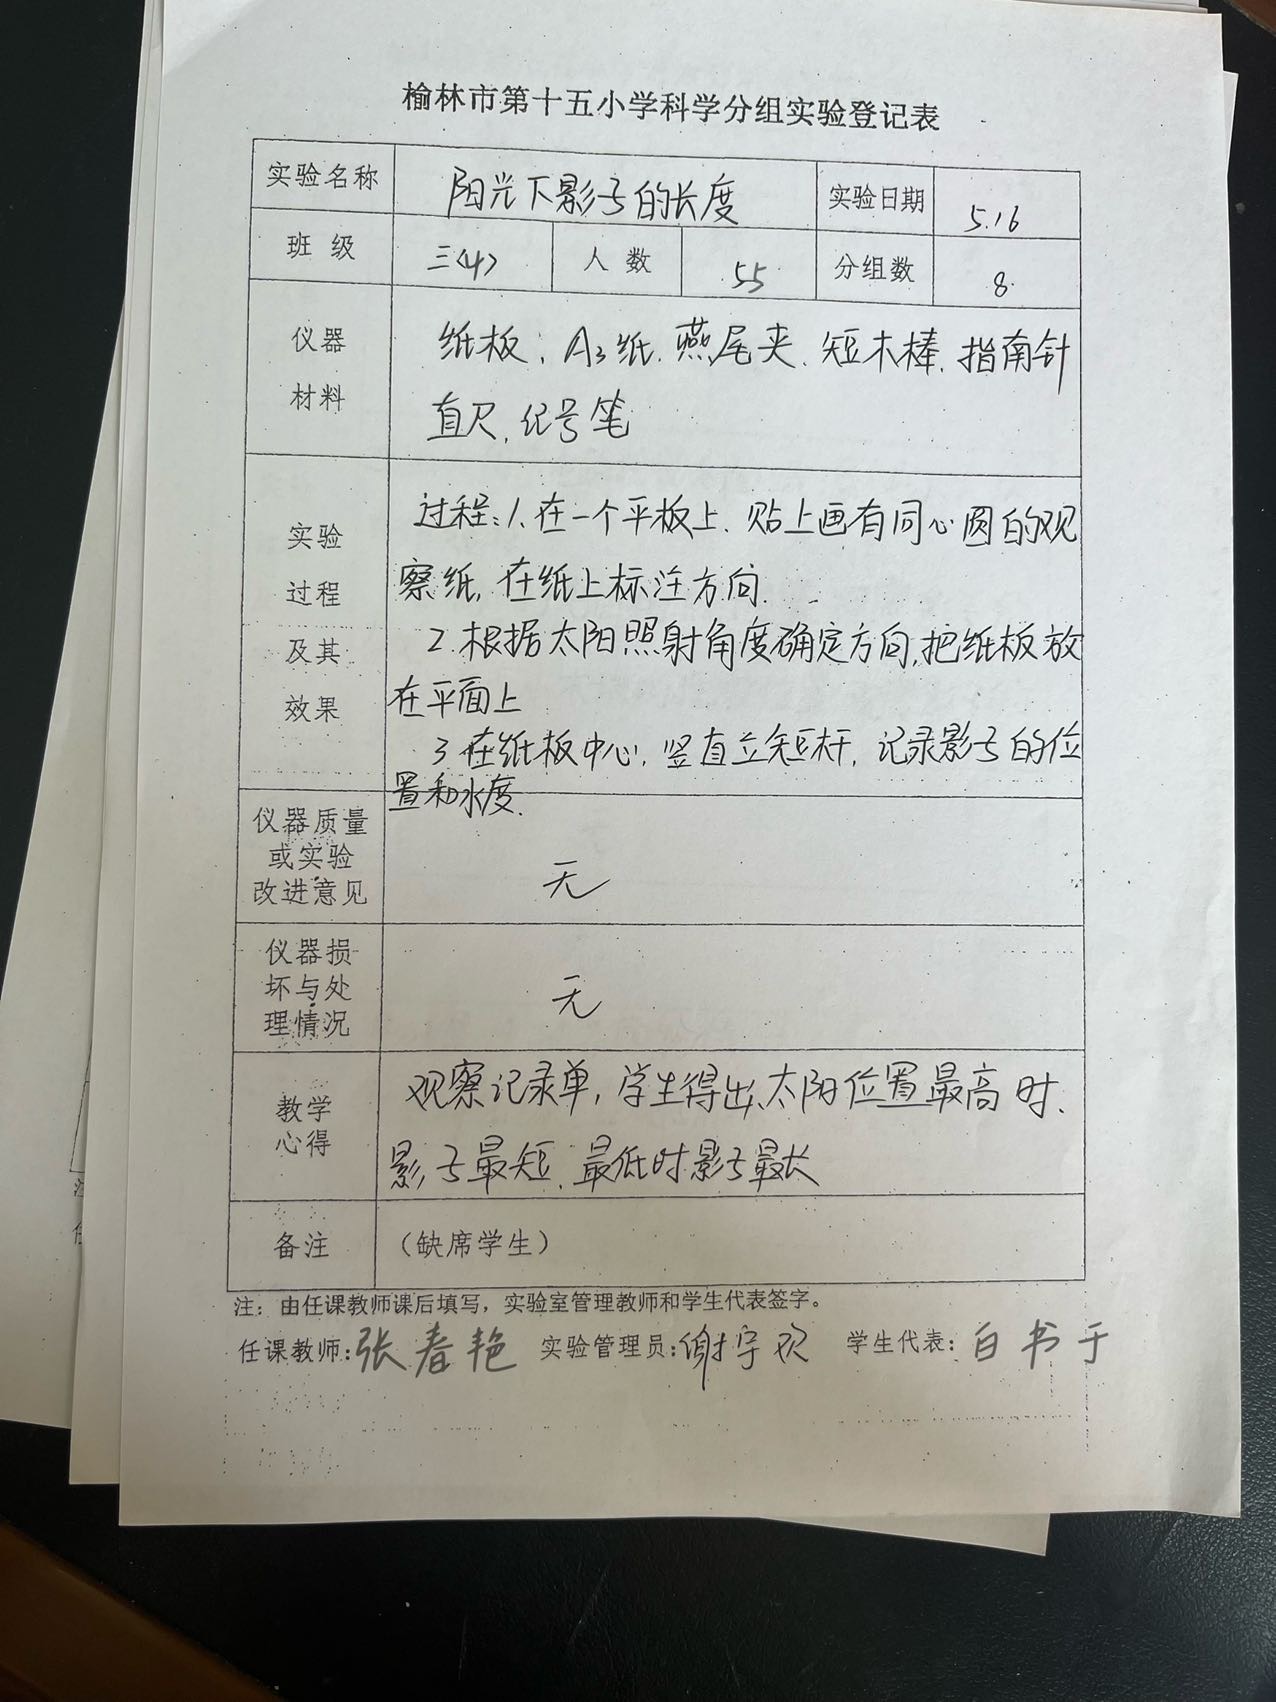 榆林市第十五小学科学分组实验登记表
实验名称 阳光下影子的长度 实验日期 5.16
班级 三<4> 人数 55 分组数 8
仪器 纸板、A3纸、燕尾夹、短木棒、指南针
材料 直尺、记号笔
过程:1、在一个平板上、贴上画有同心圆的观
实验
过程 察纸,在纸上标注方向.
及其 2.根据太阳照射角度确定方向,把纸板放
效果 在平面上
3.在纸板中心,竖直立短杆,记录影子的位
置和水度.
仪器质量
或实验
改进意见 无
仪器损
坏与处
理情况 无
教学 观察记录单,学生得出、太阳位置最高时、
心得 影子最短、最低时影子最长
备注 (缺席学生)
注:由任课教师课后填写,实验室管理教师和学生代表签字。
任课教师:张春艳 实验管理员:谢宇欢 学生代表:白书于